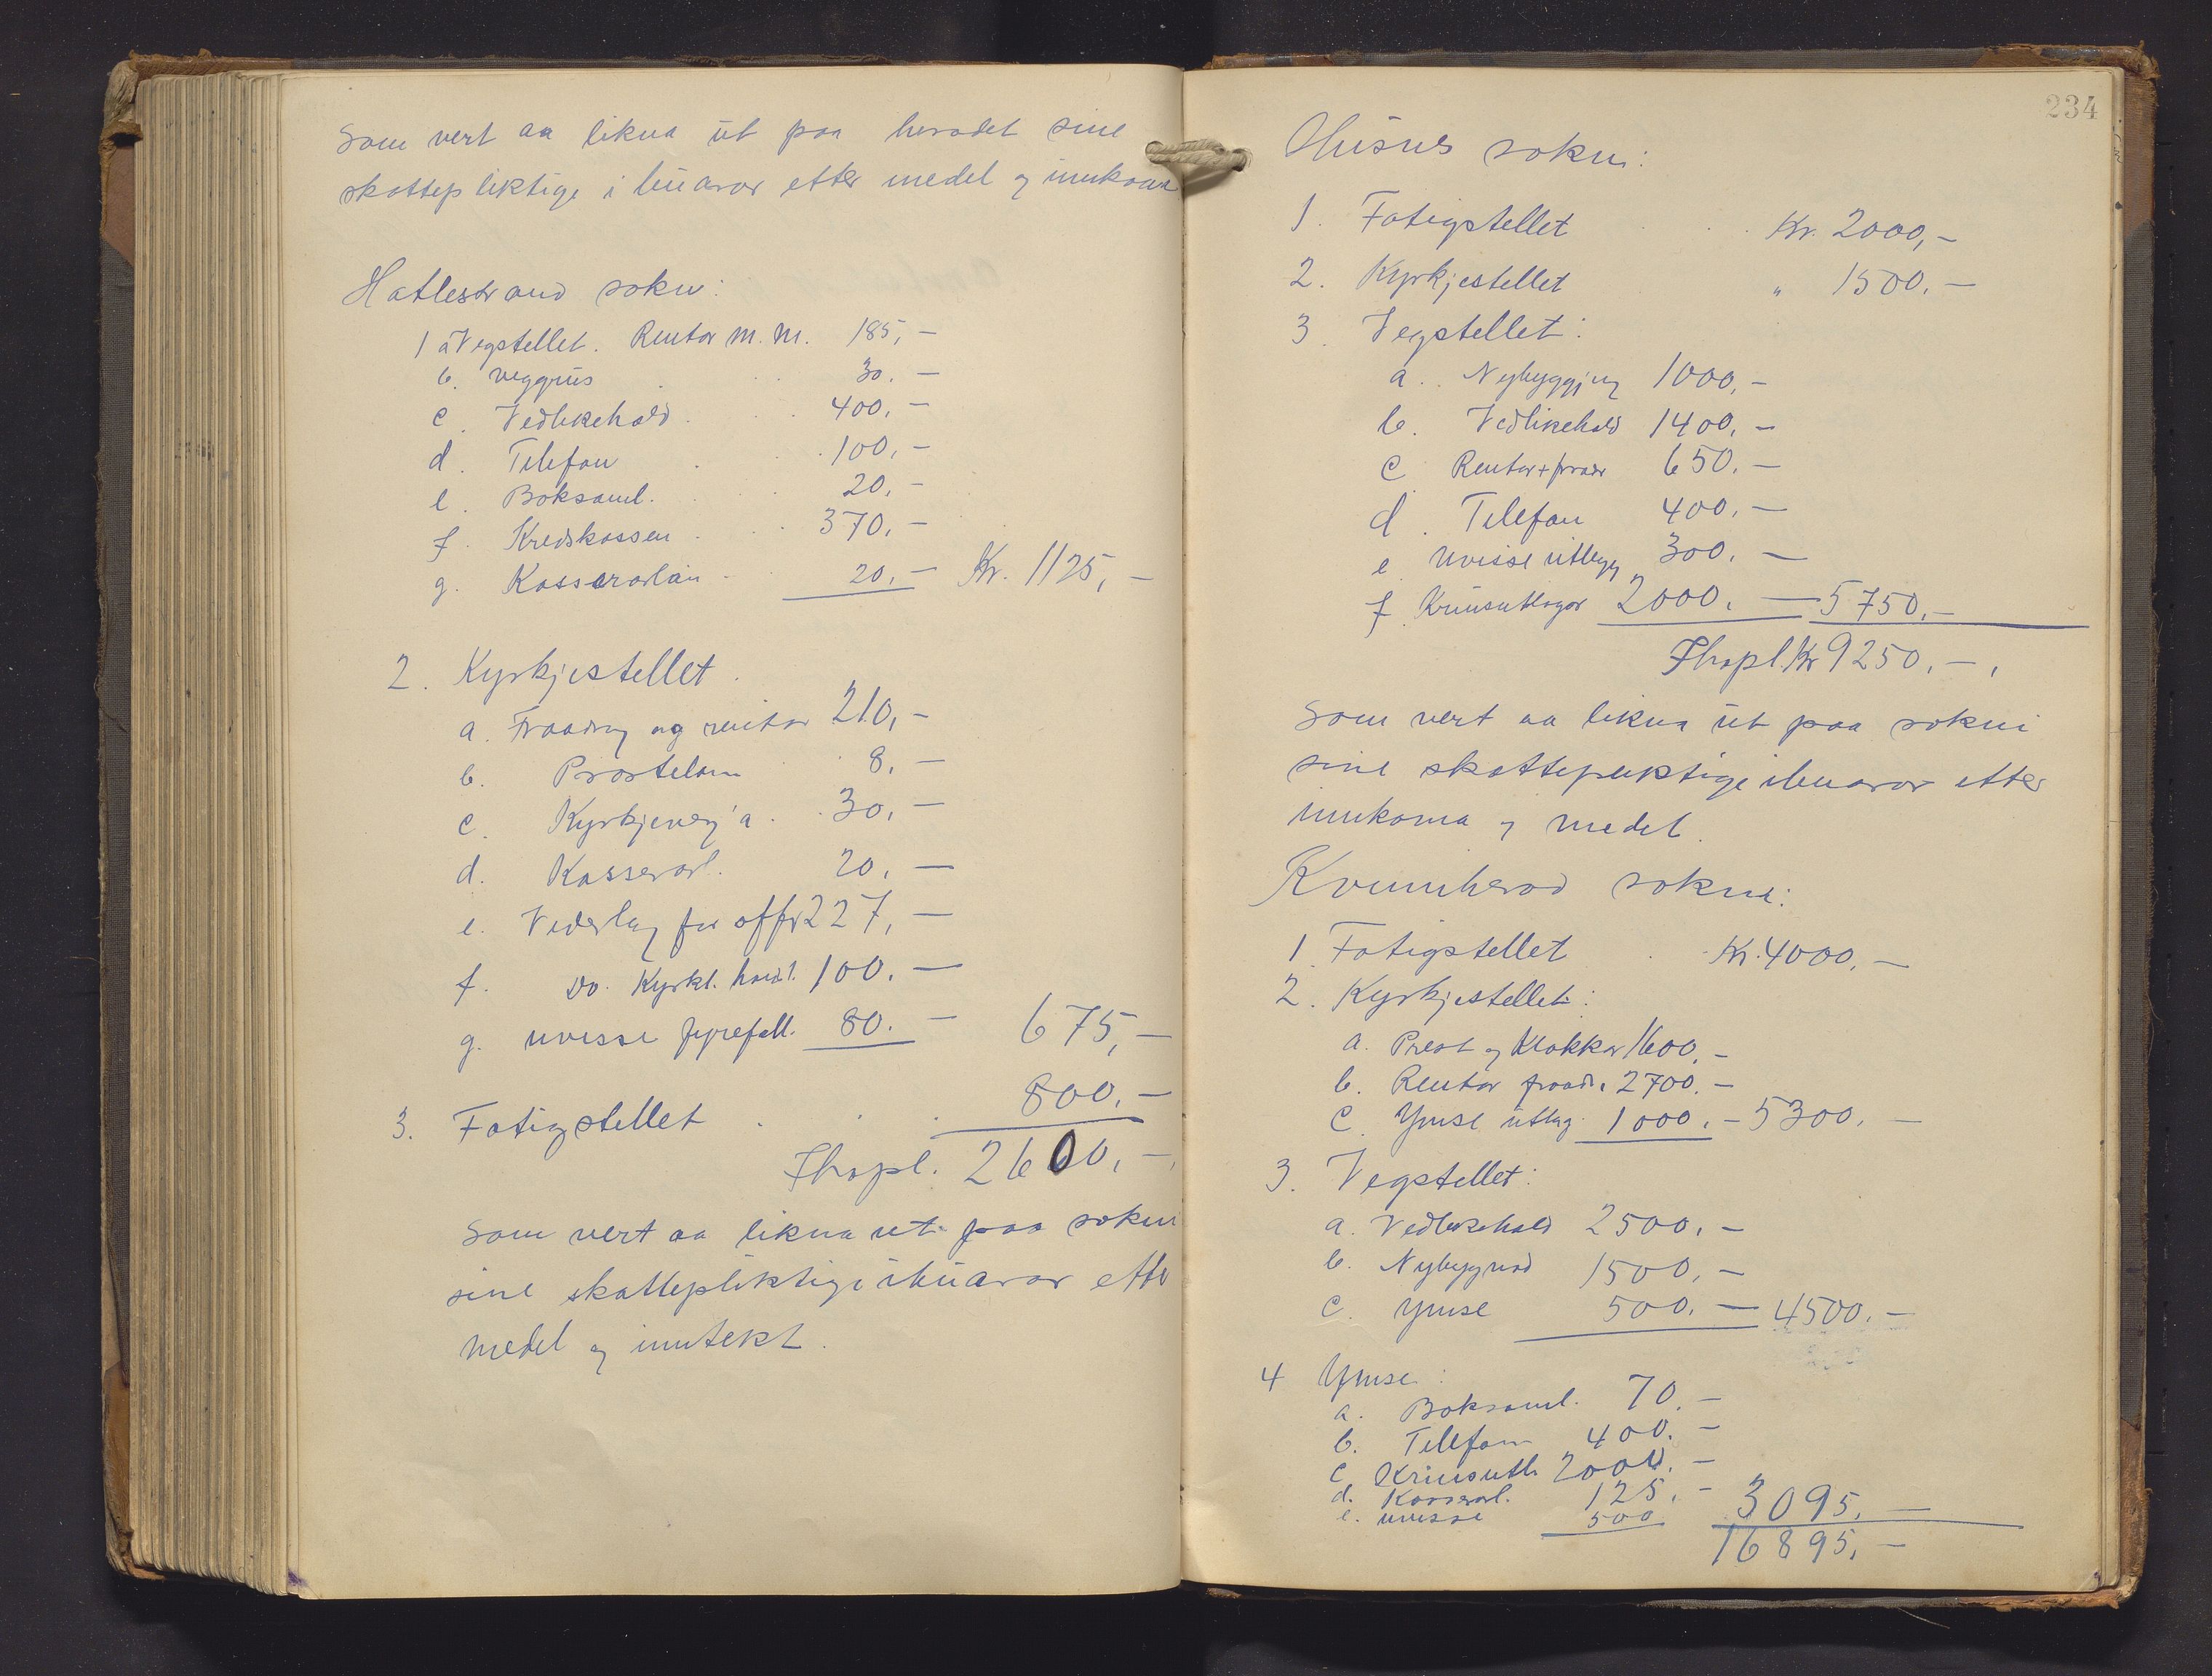 Som vert aa likna ut paa heradet sine
skattepliktige ibuarar etter medel og innkoma
Hatlestrand sokn:
1 a Vegstellet. Rentor m.m. 185,-
b. veggrus 30.-
c. Vedlikehald 400,-
d. Telefon 100,-
e. Boksaml. 20,-
f. Kredskassen 370.-
g. Kasserarløn 20,- Kr. 1125,-
2. Kyrkjestellet
a. Fraadrag og rentor 210,-
b. 8.-
c. Kyrkjeverja 30,-
d. Kasserarl. 20.-
e. Vederlag for offr 227,-
f. Do. Kyrkl. handl. 100.-
g. uvisse fyrefall. 80.- 675,-
3. Fatigstellet 800.-
Ihopl. 2600,-
Som vert aa likna ut paa sokni
sine skattepliktige ibuarar etter
medel og inntekt.
234
Husnes sokn:
1. Fatigstellet Kr. 2000,-
2. Kyrkjestellet " 1500.-
3. Vegstellet:
a. Nybyggjing 1000,-
b. Vedlikehald 1400,-
c Rentor + fraadr 650.-
d. Telefon 400,-
e. Uvisse utlegg 300.-
f. Kriseutlogor 2000.- 5750,-
Ihopl. Kr 9250.-,
Som vert aa likna ut paa sokni
sine skattepliktige ibuarar etter
innkoma og medel.
Kvinnherad sokn:
1 Fatigstellet Kr. 4000,-
2. Kyrkjestellet:
a. Prest og Klokkar 1600,-
b. Rentor fraadr. 2700.-
c. Ymse utlag 1000.- 5300.-
3. Vegstellet:
a. Vedlikehald 2500.-
b. Nybygnad 1500,-
c. Ymse 500.- 4500.-
4 Ymse:
a. Boksaml. 70.-
b. Telefon 400.-
c Kriseutl. 2000.-
d. Kasserarl. 125.-
e. uvisse 500 3095,-
16895,-